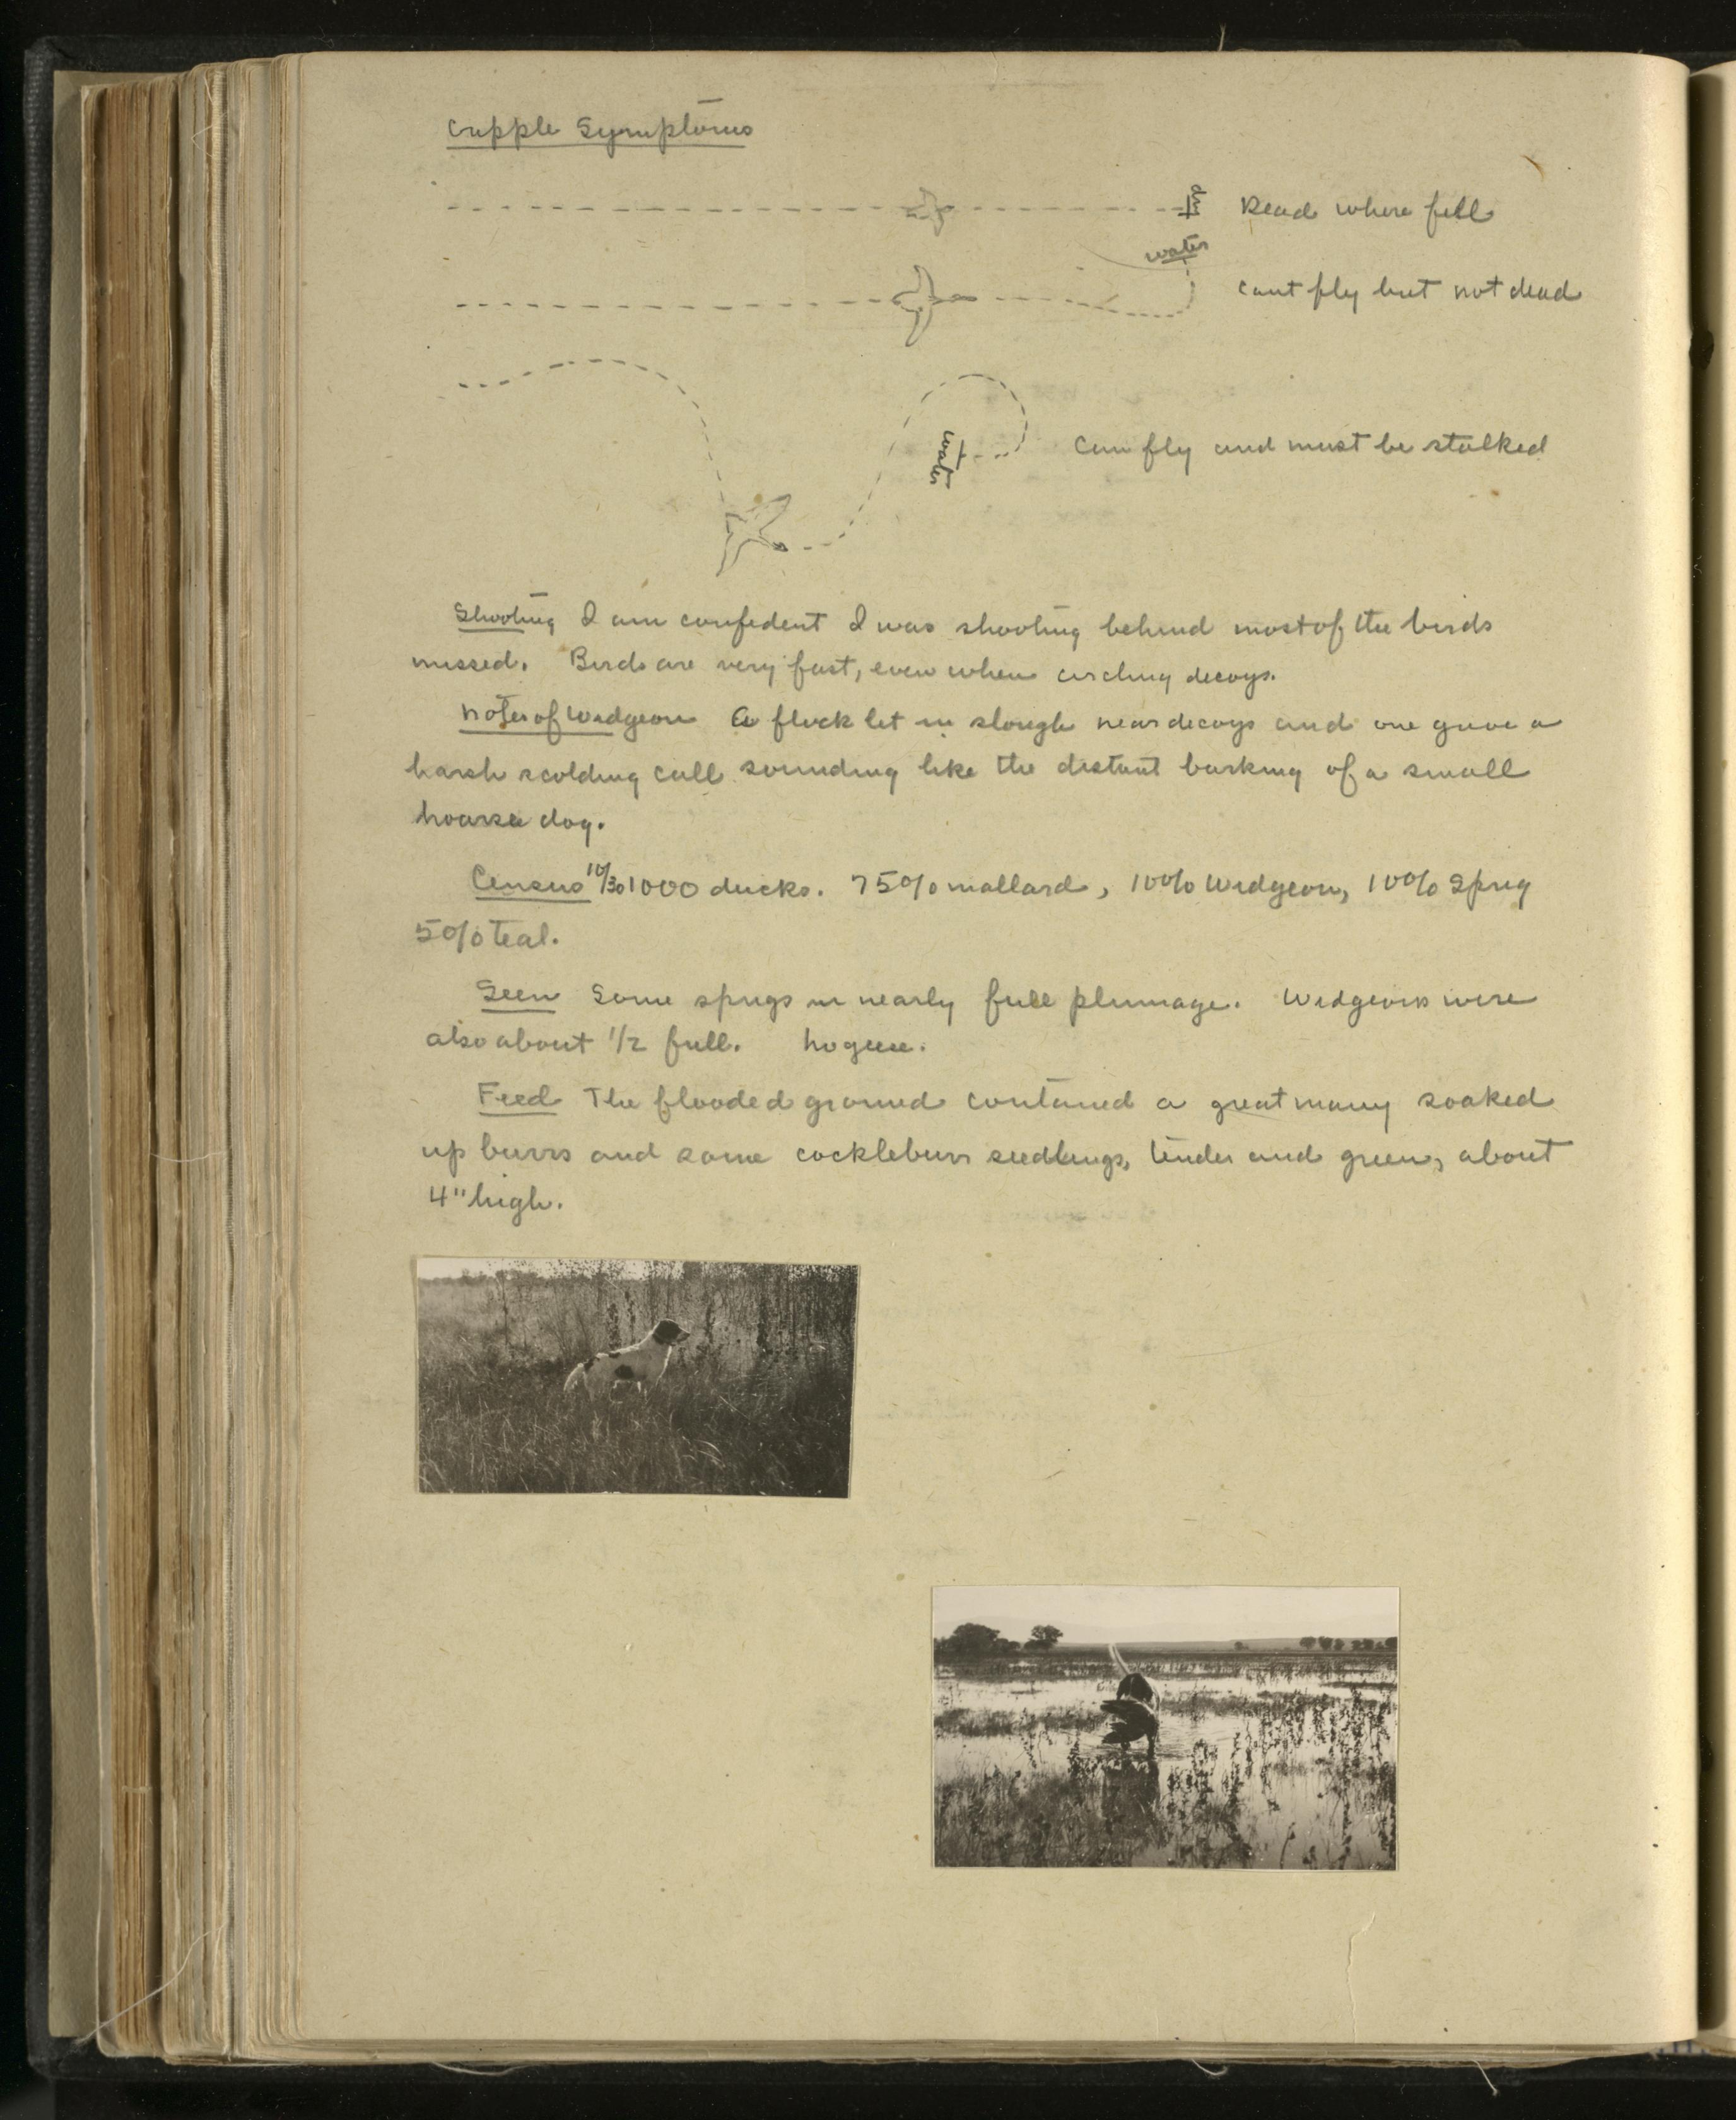 Cripple Symptoms
Dead where fell
water
cant fly but not dead
water
Can fly and must be stalked
Shooting I am confident I was shooting behind most of the birds
missed. Birds are very fast, even when circling decoys.
Notes of Widgeon A flock let in slough near decoys and one gave a
harsh scolding call sounding like the distant barking of a small
hoarse dog.
Census 10/30 1000 ducks. 75% mallard, 10% Widgeon, 10% Sprig
5% teal.
Seen Some sprigs in nearly full plumage. Widgeons were
also about 1/2 full. No geese.
Feed The flooded ground contained a great many soaked
up burrs and some cocklebur seedlings, tender and green, about
4" high.